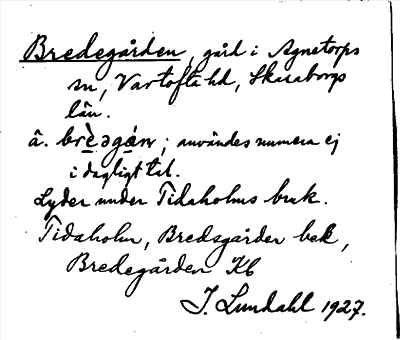 Bredegården, gård i Agnetorps
sn, Vartofta hd, Skaraborgs
län.
â. brèəgán; användes numera ej
i dagligt tal.
Lyder under Tidaholms bruk.
Tidaholm, Bredsgården bek,
Bredegården Kb
J. Lundahl 1927.